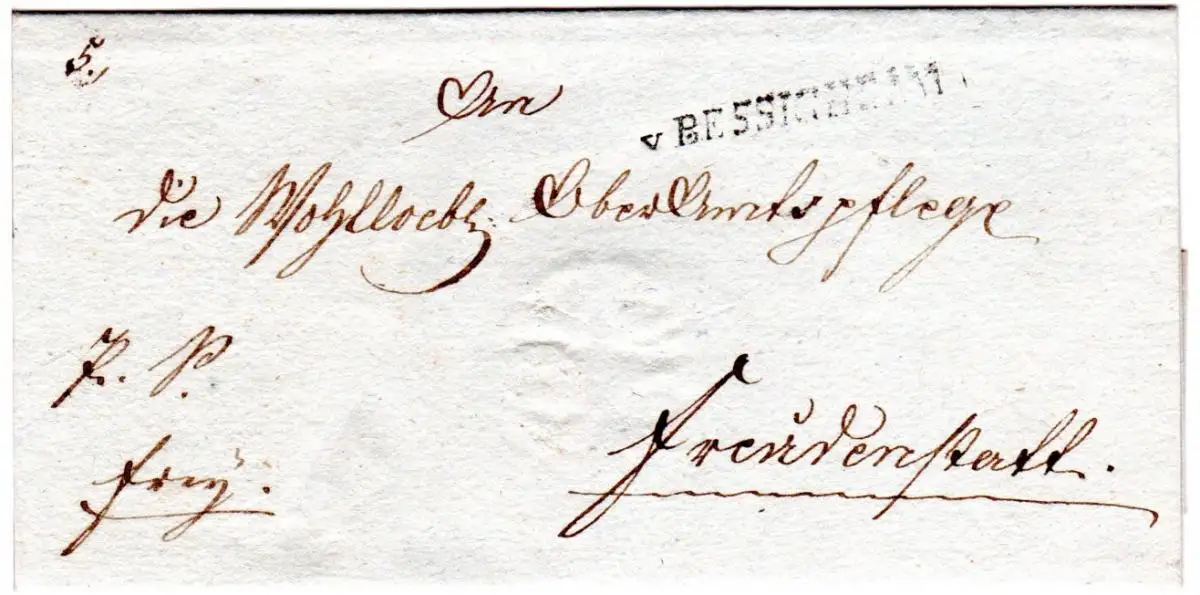 5.
An
v BESSIGHEIM
die Wohlloebl. OberAmtspflege
P. S.
frey.
Freudenstatt.